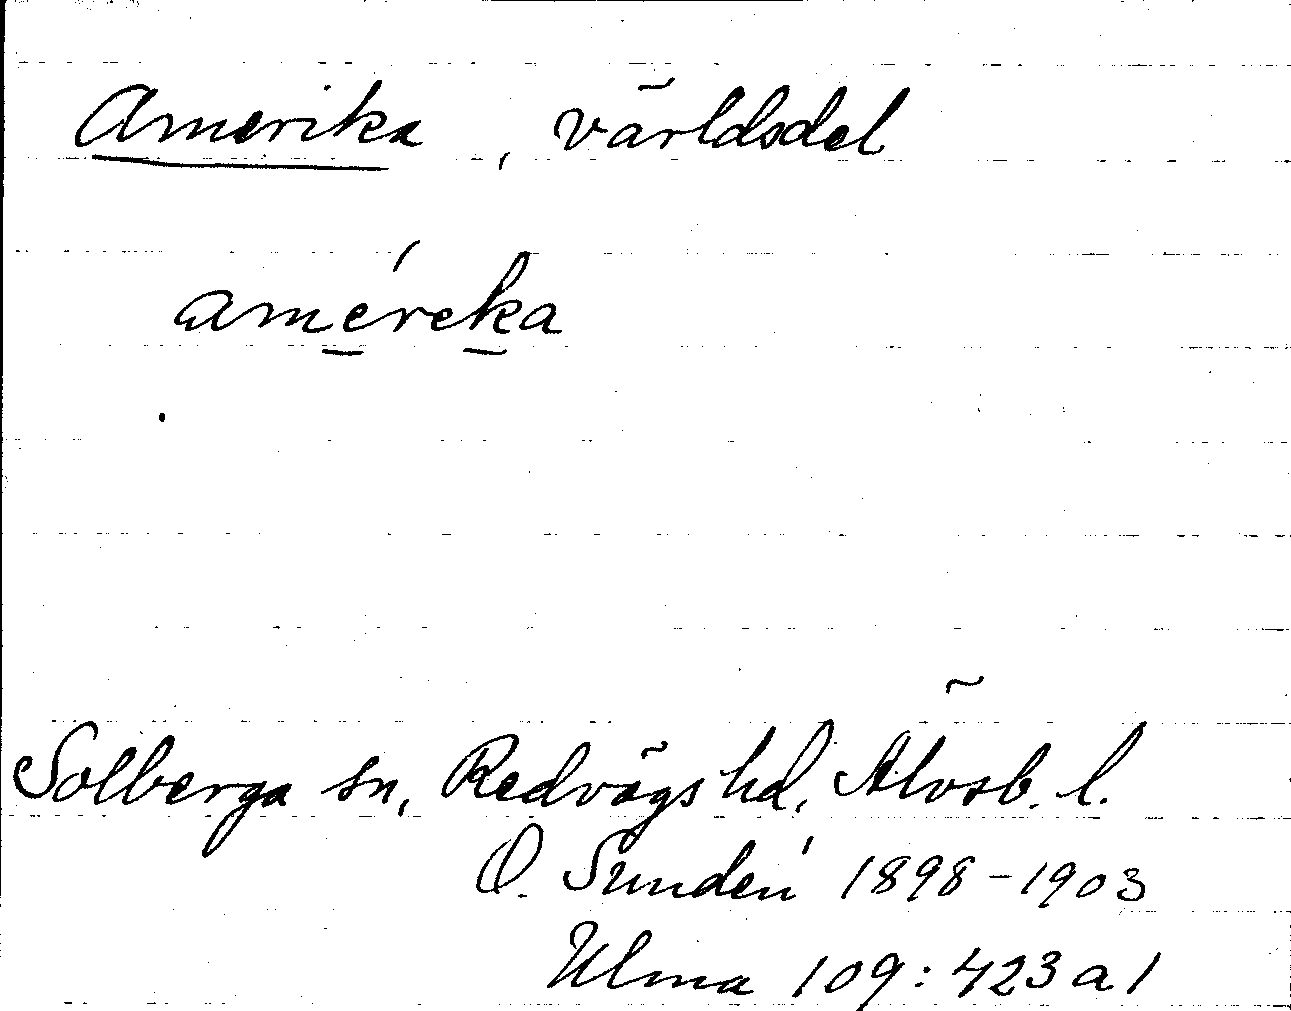 Amerika, världsdel
améreka
Solberga sn, Redvägs hd, Älvsb. l.
O. Sundén 1898-1903
Ulma 109:423 a 1